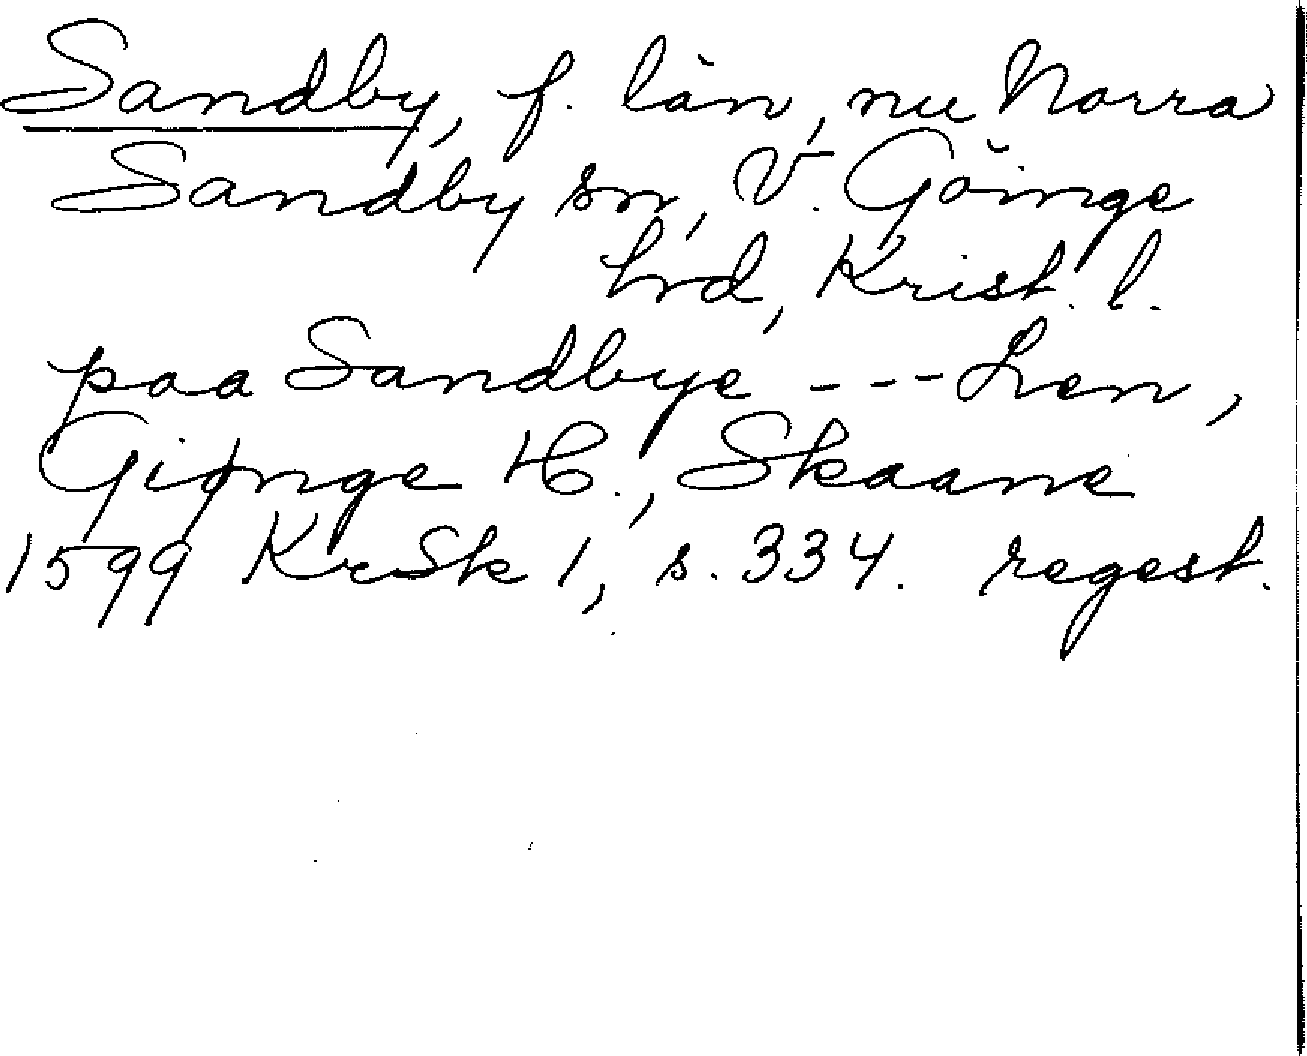 Sandby, f. län, nu Norra
Sandby sn, V. Göinge
hrd, Krist. l.
paa Sandbye --- Len,
Giønge H., Skaane
1599 KrSk 1, s. 334. regest.